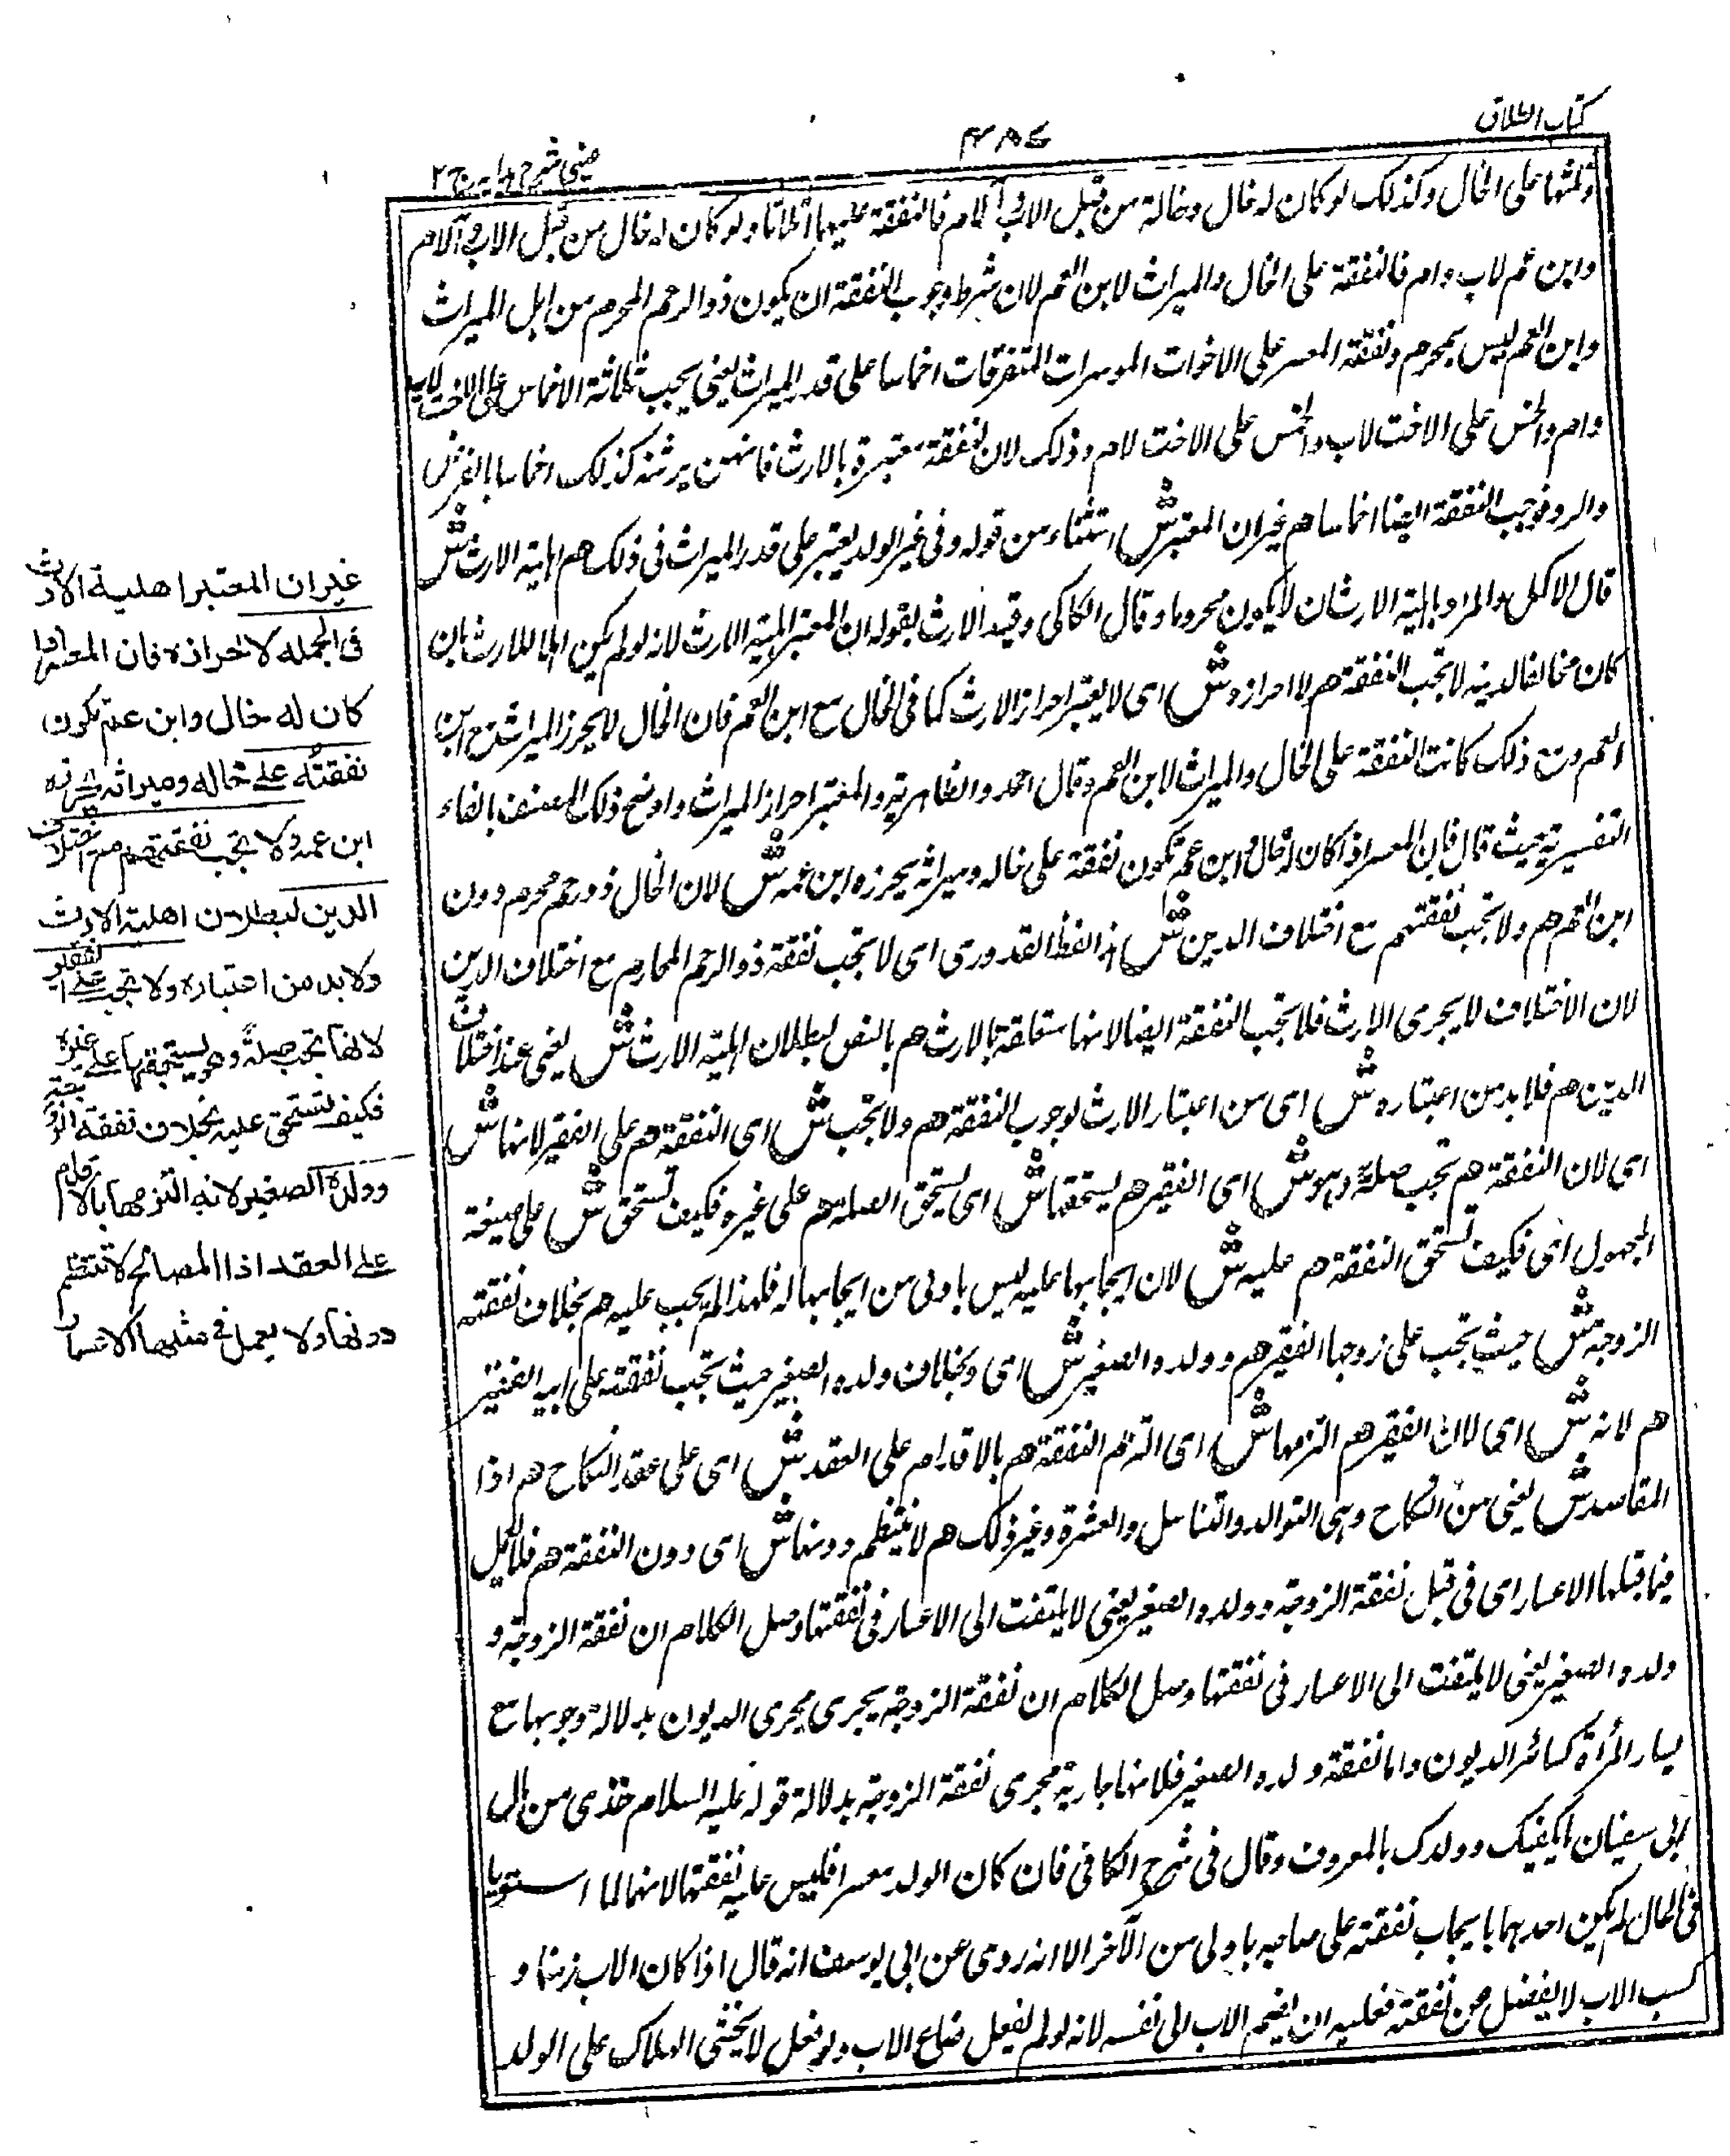 كتاب الطلاق
عينى شرح هدايه ج ٢
وثلثها على الخال وكذلك لو كان له خال وخالة من قبل الاب والام فالنفقة عليهما اثلاثا ولو كان له خال من قبل الاب والام
وابن عم لاب وام فالنفقة على الخال والميراث لابن العم لان شرط وجوب النفقة ان يكون ذو الرحم المحرم من اهل الميراث
وابن العم ليس بمحرم ونفقة المعسر على الاخوات الموسرات المتفرقات اخماسا على قدر الميراث يعنى يجب ثلاثة الاخماس على الاخت لاب
وام والخمس على الاخت لاب والخمس على الاخت لام وذلك لان النفقة معتبرة بالارث فانهن يرثنه كذلك اخماسا بالفرض
والرد فوجب النفقة ايضا اخماسا هم غير ان المعتبر ش استثناء من قوله وفى غير الولد يعتبر على قدر الميراث فى ذلك هم اهلية الارث ش
قال الاكمل والمراد باهلية الارث ان لا يكون محروما وقال الكاكى وقيد الارث بقوله ان المعتبر اهلية الارث لانه لو لم يكن اهلا للارث بان
كان مخالفا لدينه لا تجب النفقة هم لا احرازه ش اى لا يعتبر احراز الارث كما فى الخال مع ابن العم فان الخال لا يحرز الميراث مع ابن
العم ومع ذلك كانت النفقة على الخال والميراث لابن العم وقال احمد والظاهرية والمعتبر احراز الميراث واوضح ذلك المصنف بالفاء
التفسيرية حيث قال فان المعسر اذا كان له خال وابن عم تكون نفقة على خاله وميراثه يحرزه ابن عمه ش لان الخال ذو رحم محرم دون
ابن العم هم ولا تجب نفقتهم مع اختلاف الدين ش هذا لفظ القدورى اى لا تجب نفقة ذو الرحم المحارم مع اختلاف الدين
لان الاختلاف لا يجرى الارث فلا تجب النفقة ايضا لانها متعلقة بالارث هم بالنص لبطلان اهلية الارث ش يعنى عند اختلاف
الدين هم فلا بد من اعتباره ش اى من اعتبار الارث لوجوب النفقة هم ولا تجب ش اى النفقة هم على الفقير لانها ش
اى لان النفقة هم تجب صلة وهو ش اى الفقير هم يستحقها ش اى يستحق الصلة هم على غيره فكيف تستحق ش على صيغة
المجهول اى فكيف تستحق النفقة هم عليه ش لان ايجابها عليه ليس باولى من ايجابها له فلهذا لم يجب عليه هم بخلاف نفقته
الزوجة ش حيث تجب على زوجها الفقير هم وولده الصغير ش اى وبخلاف ولده الصغير حيث تجب نفقته على ابيه الفقير
هم لانه ش اى لان الفقير هم التزمها ش اى التزم النفقة هم بالاقدام على العقد ش اى على عقد النكاح هم اذا
المقاصد ش يعنى من النكاح وهى التوالد والتناسل والعشرة وغير ذلك هم لا ينتظم دونها ش اى دون النفقة هم فلا يعمل
فيما قبلها الاعسار اى فى قبل نفقة الزوجة وولده الصغير يعنى لا يلتفت الى الاعسار فى نفقتها وصل الكلام ان نفقة الزوجة و
ولده الصغير يعنى لا يلتفت الى الاعسار فى نفقتها وصل الكلام ان نفقة الزوجة يجرى مجرى الديون بدلالة وجوبها مع
يسار المرأة كسائر الديون واما نفقة ولده الصغير فلانها جارية مجرى نفقة الزوجة بدلالة قوله عليه السلام خذى من مال
ابى سفيان ما يكفيك وولدك بالمعروف وقال فى شرح الكافى فان كان الولد معسرا فليس عليه نفقتها لانهما لما استويا
فى الحال لم يكن احدهما بايجاب نفقته على صاحبه باولى من الآخر الا انه روى عن ابى يوسف انه قال اذا كان الاب زمنا و
كسب الاب لا يفضل عن نفقته فعليه ان يضم الاب الى نفسه لانه لو لم يفعل ضاع الاب ولو فعل لا يخشى الهلاك على الولد
غيران المعتبر اهلية الارث
فى الجمله لا احرازه فان المعسر اذا
كان له خال وابن عم تكون
نفقته على خاله وميراثه يحرزه
ابن عمه ولا تجب نفقتهم مع اختلاف
الدين لبطلان اهلية الارث
ولا بد من اعتباره ولا تجب على الفقير
لانها تجب صلةً وهو يستحقها على غيره
فكيف تستحق عليه بخلاف نفقة الزوجة
وولده الصغير لانه التزمها بالاقدام
على العقد اذا المصالح لا تنتظم
دونها ولا يعمل فى مثلها الاعسار